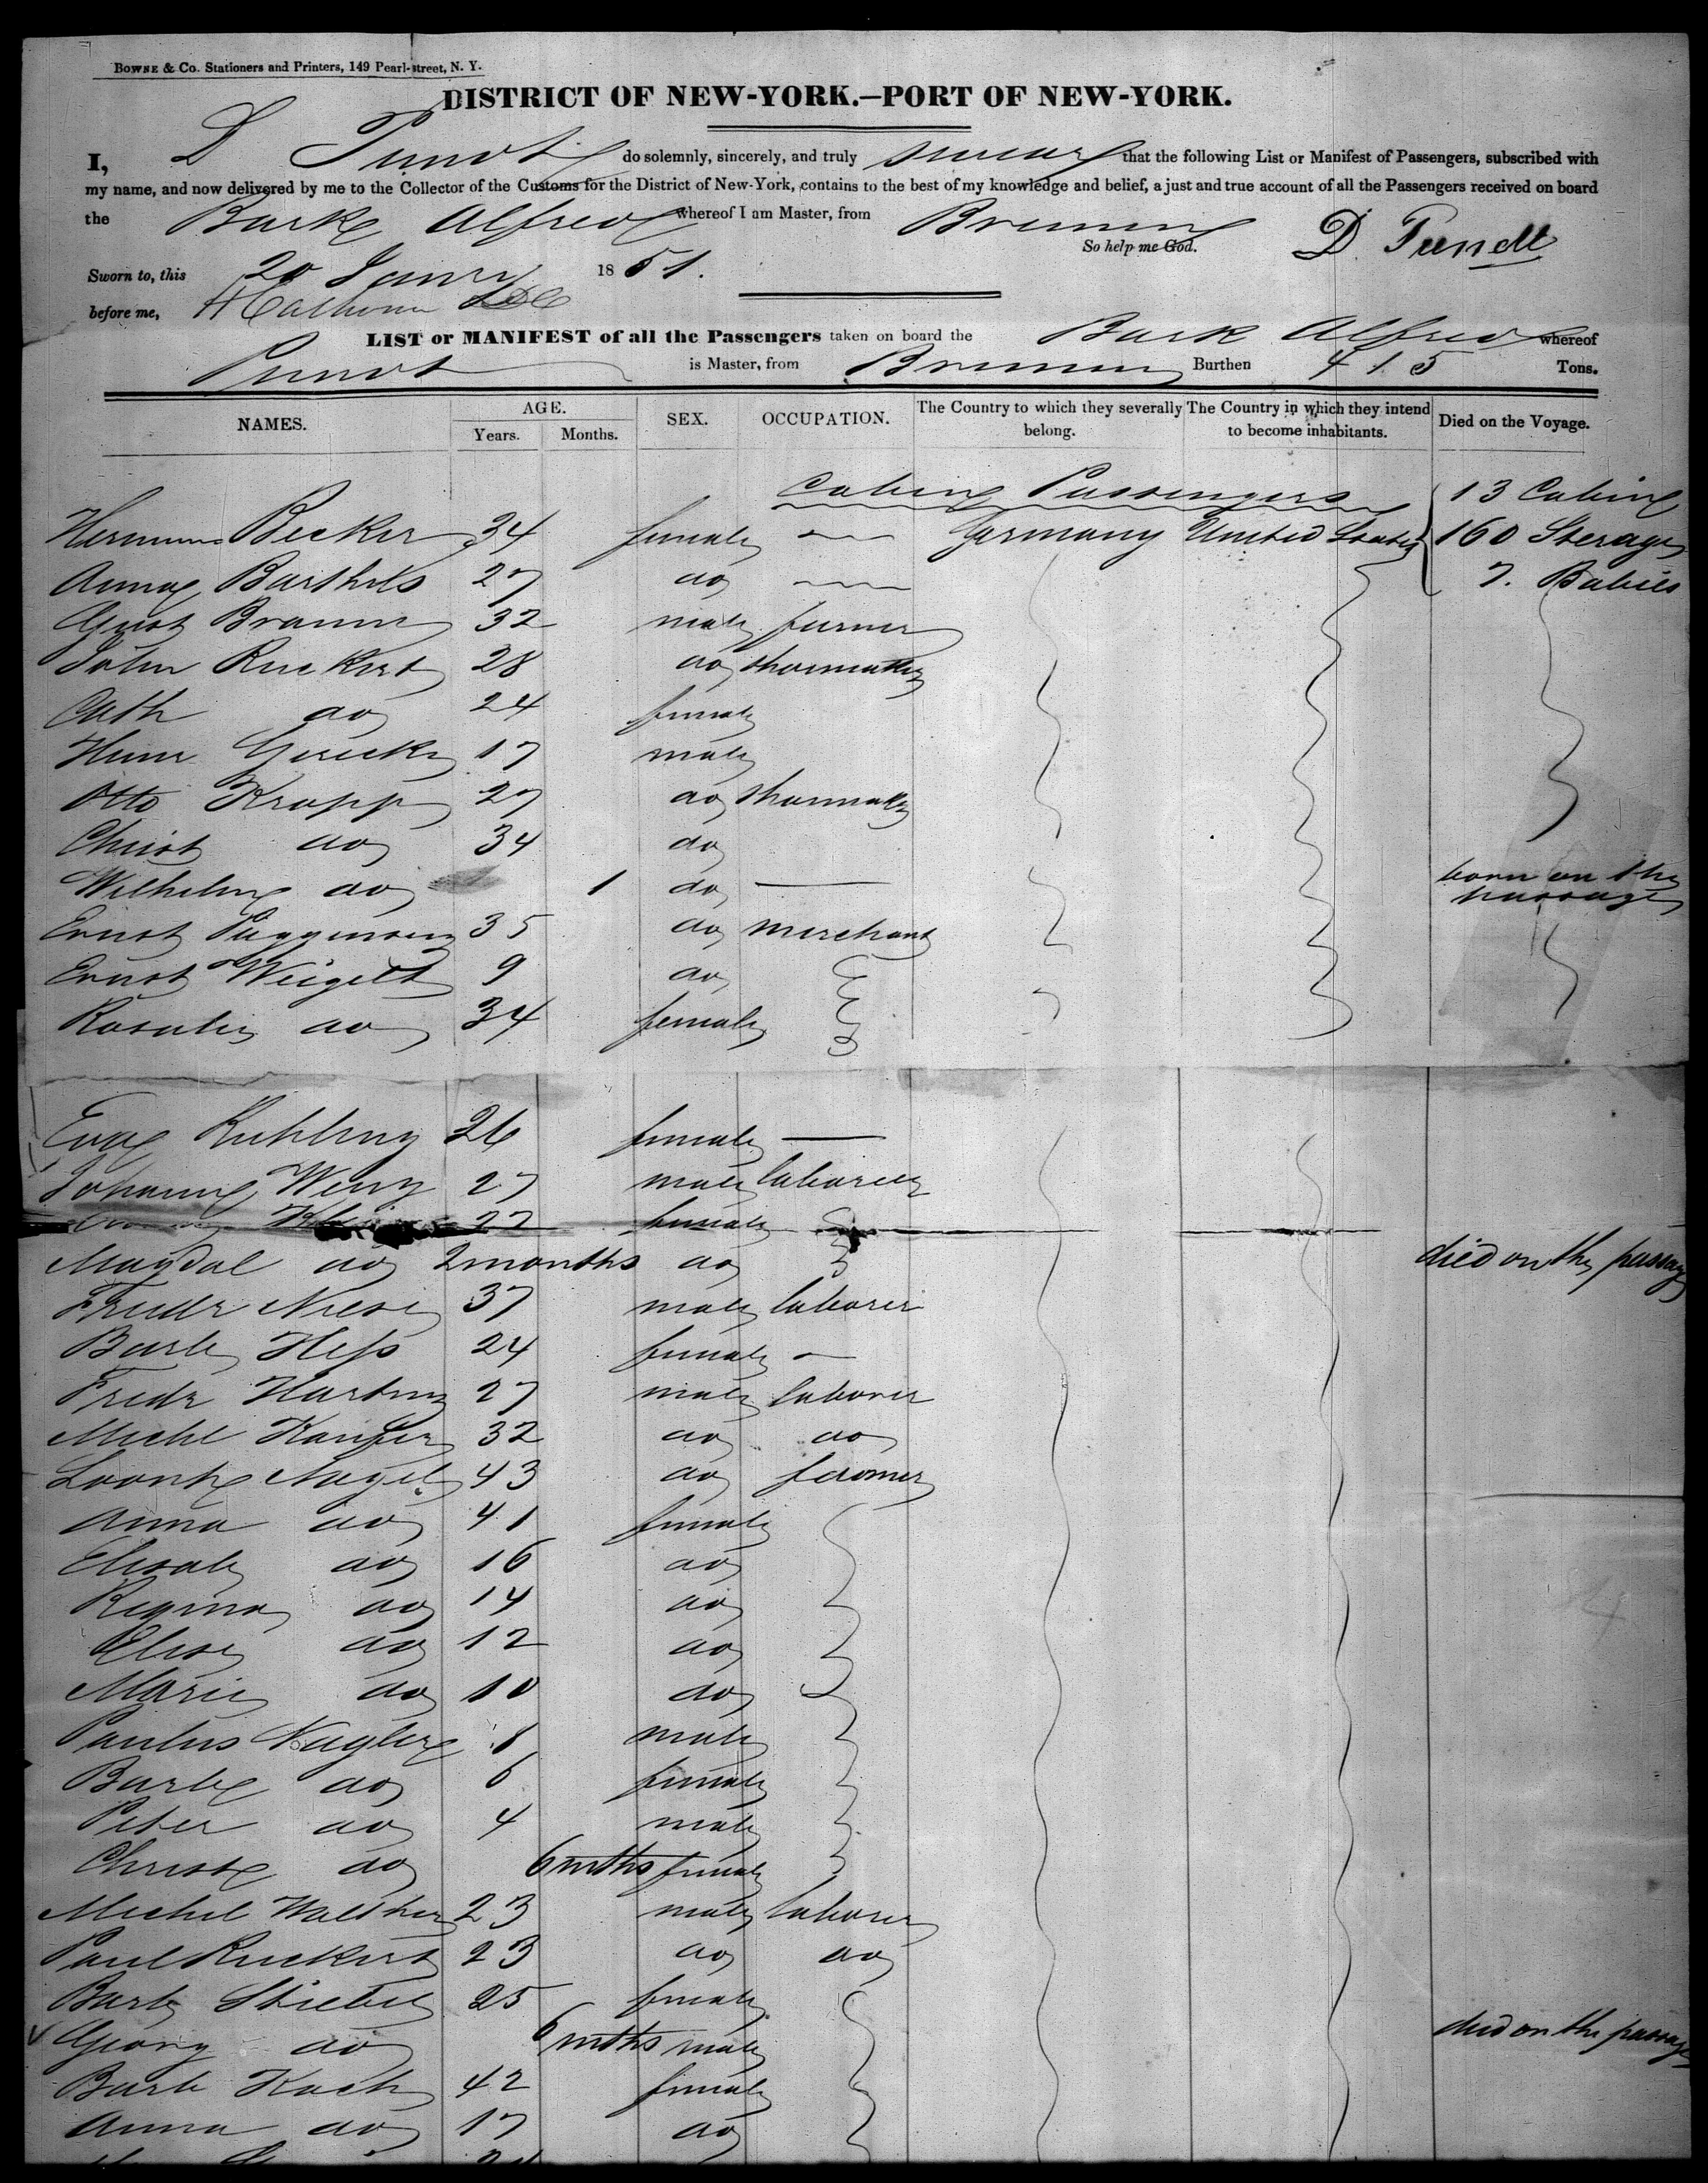 BOWNE & Co. Stationers and Printers, 149 Pearl-street, N. Y.
DISTRICT OF NEW-YORK.—PORT OF NEW-YORK.
I, D do solemnly, sincerely, and truly swear that the following List or Manifest of Passengers, subscribed with
my name, and now delivered by me to the Collector of the Customs for the District of New-York, contains to the best of my knowledge and belief, a just and true account of all the Passengers received on board
the Barke Alfred whereof I am Master, from Bremen
So help me God. D.
Sworn to, this 20 Janry 1851.
before me, HCalhoun
LIST or MANIFEST of all the Passengers taken on board the Bark Alfred whereof
is Master, from Bremen Burthen 415 Tons.
NAMES. AGE. Years. Months. SEX. OCCUPATION. The Country to which they severally belong. The Country in which they intend to become inhabitants. Died on the Voyage.
Cabine Passengers 13 Cabine
Becker 34 female Germany United States 160 Sterage
Anna Barthels 27 do 7. Babies
32 male farmer
John Ruckert 28 do shoemaker
Cath do 24 female
17 male
Otto Krapp 27 do shoemaker
Christ do 34 do
Wilhelm do 1 do born on the passage
Ernst 35 do merchant
Ernst Weigelt 9 do
Rosalie do 34 female
Eva 26 female
Johann 27 male laborer
27 female
Magdal do 2 months do died on the passage
Friedr 37 male laborer
Barb Heß 24 female
Fredr Hartung 27 male laborer
Michl 32 do do
Nagel 43 do farmer
Anna do 41 female
Elisab do 16 do
Regina do 14 do
Elise do 12 do
Marie do 10 do
Paulus 8 male
Barb do 6 female
Peter do 4 male
Christ do 6 mths female
Michel Walther 23 male laborer
Paul Ruckert 23 do do
Barb 25 female
Georg do 6 mths male died on the passage
Barb Koch 42 female
Anna do 17 do